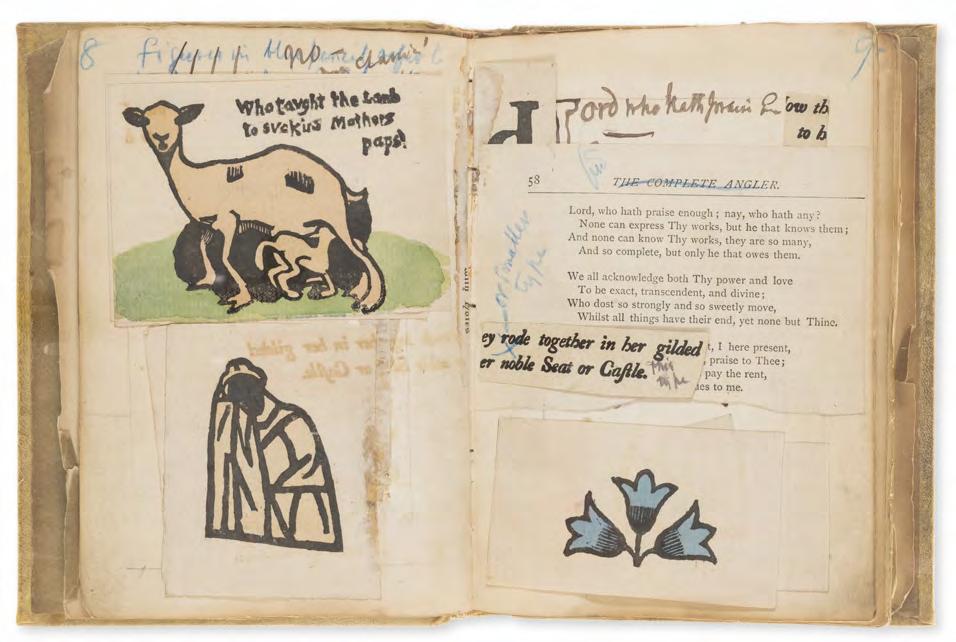 8 Figures in
Who taught the Lamb
to svckins Mothers
paps!
9
Lord who hath praise En ow th
to b
58 THE COMPLETE ANGLER.
Lord, who hath praise enough; nay, who hath any?
None can express Thy works, but he that knows them;
And none can know Thy works, they are so many,
And so complete, but only he that owes them.
or smaller
type
We all acknowledge both Thy power and love
To be exact, transcendent, and divine;
Who dost so strongly and so sweetly move,
Whilst all things have their end, yet none but Thine.
ey rode together in her gilded t, I here present,
er noble Seat or Caſtle. this praise to Thee;
type pay the rent,
es to me.